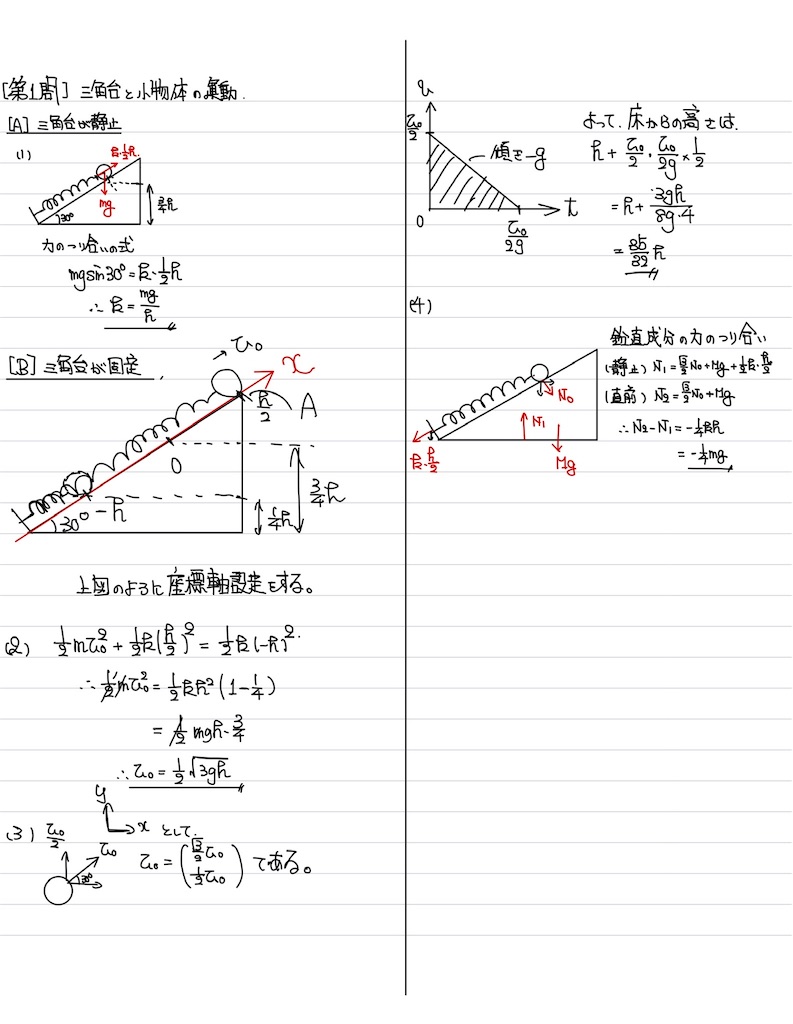 [第1問] 三角台と小物体の運動.
[A] 三角台が静止
(1)
k・½h
mg
30°
¾h
力のつり合いの式
mgsin30° = k・½h
∴ k = mg/h
[B] 三角台が固定.
→ v₀
x
h/2
A
0
¾h
¼h
30°
-h
上図のように座標軸設定をする。
(2) ½mv₀² + ½k(h/2)² = ½k(-h)².
∴ ½mv₀² = ½kh²(1-¼)
= ½mgh・¾
∴ v₀ = ½√3gh
(3)
y
x として.
v₀/2
v₀
30°
v₀ = (√3/2 v₀
½v₀) である。
v
v₀/2
傾き-g
0
v₀/2g
t
よって、床からBの高さは、
h + v₀/2・v₀/2g × ½
= h + 3gh/8g・4
= 35/32 h
(4)
鉛直成分の力のつり合い
(静止) N₁ = √3/2 N₀ + Mg + ½k・h/2
(直前) N₂ = √3/2 N₀ + Mg
∴ N₂-N₁ = -¼kh
= -¼mg
N₀
N₁
k・h/2
Mg